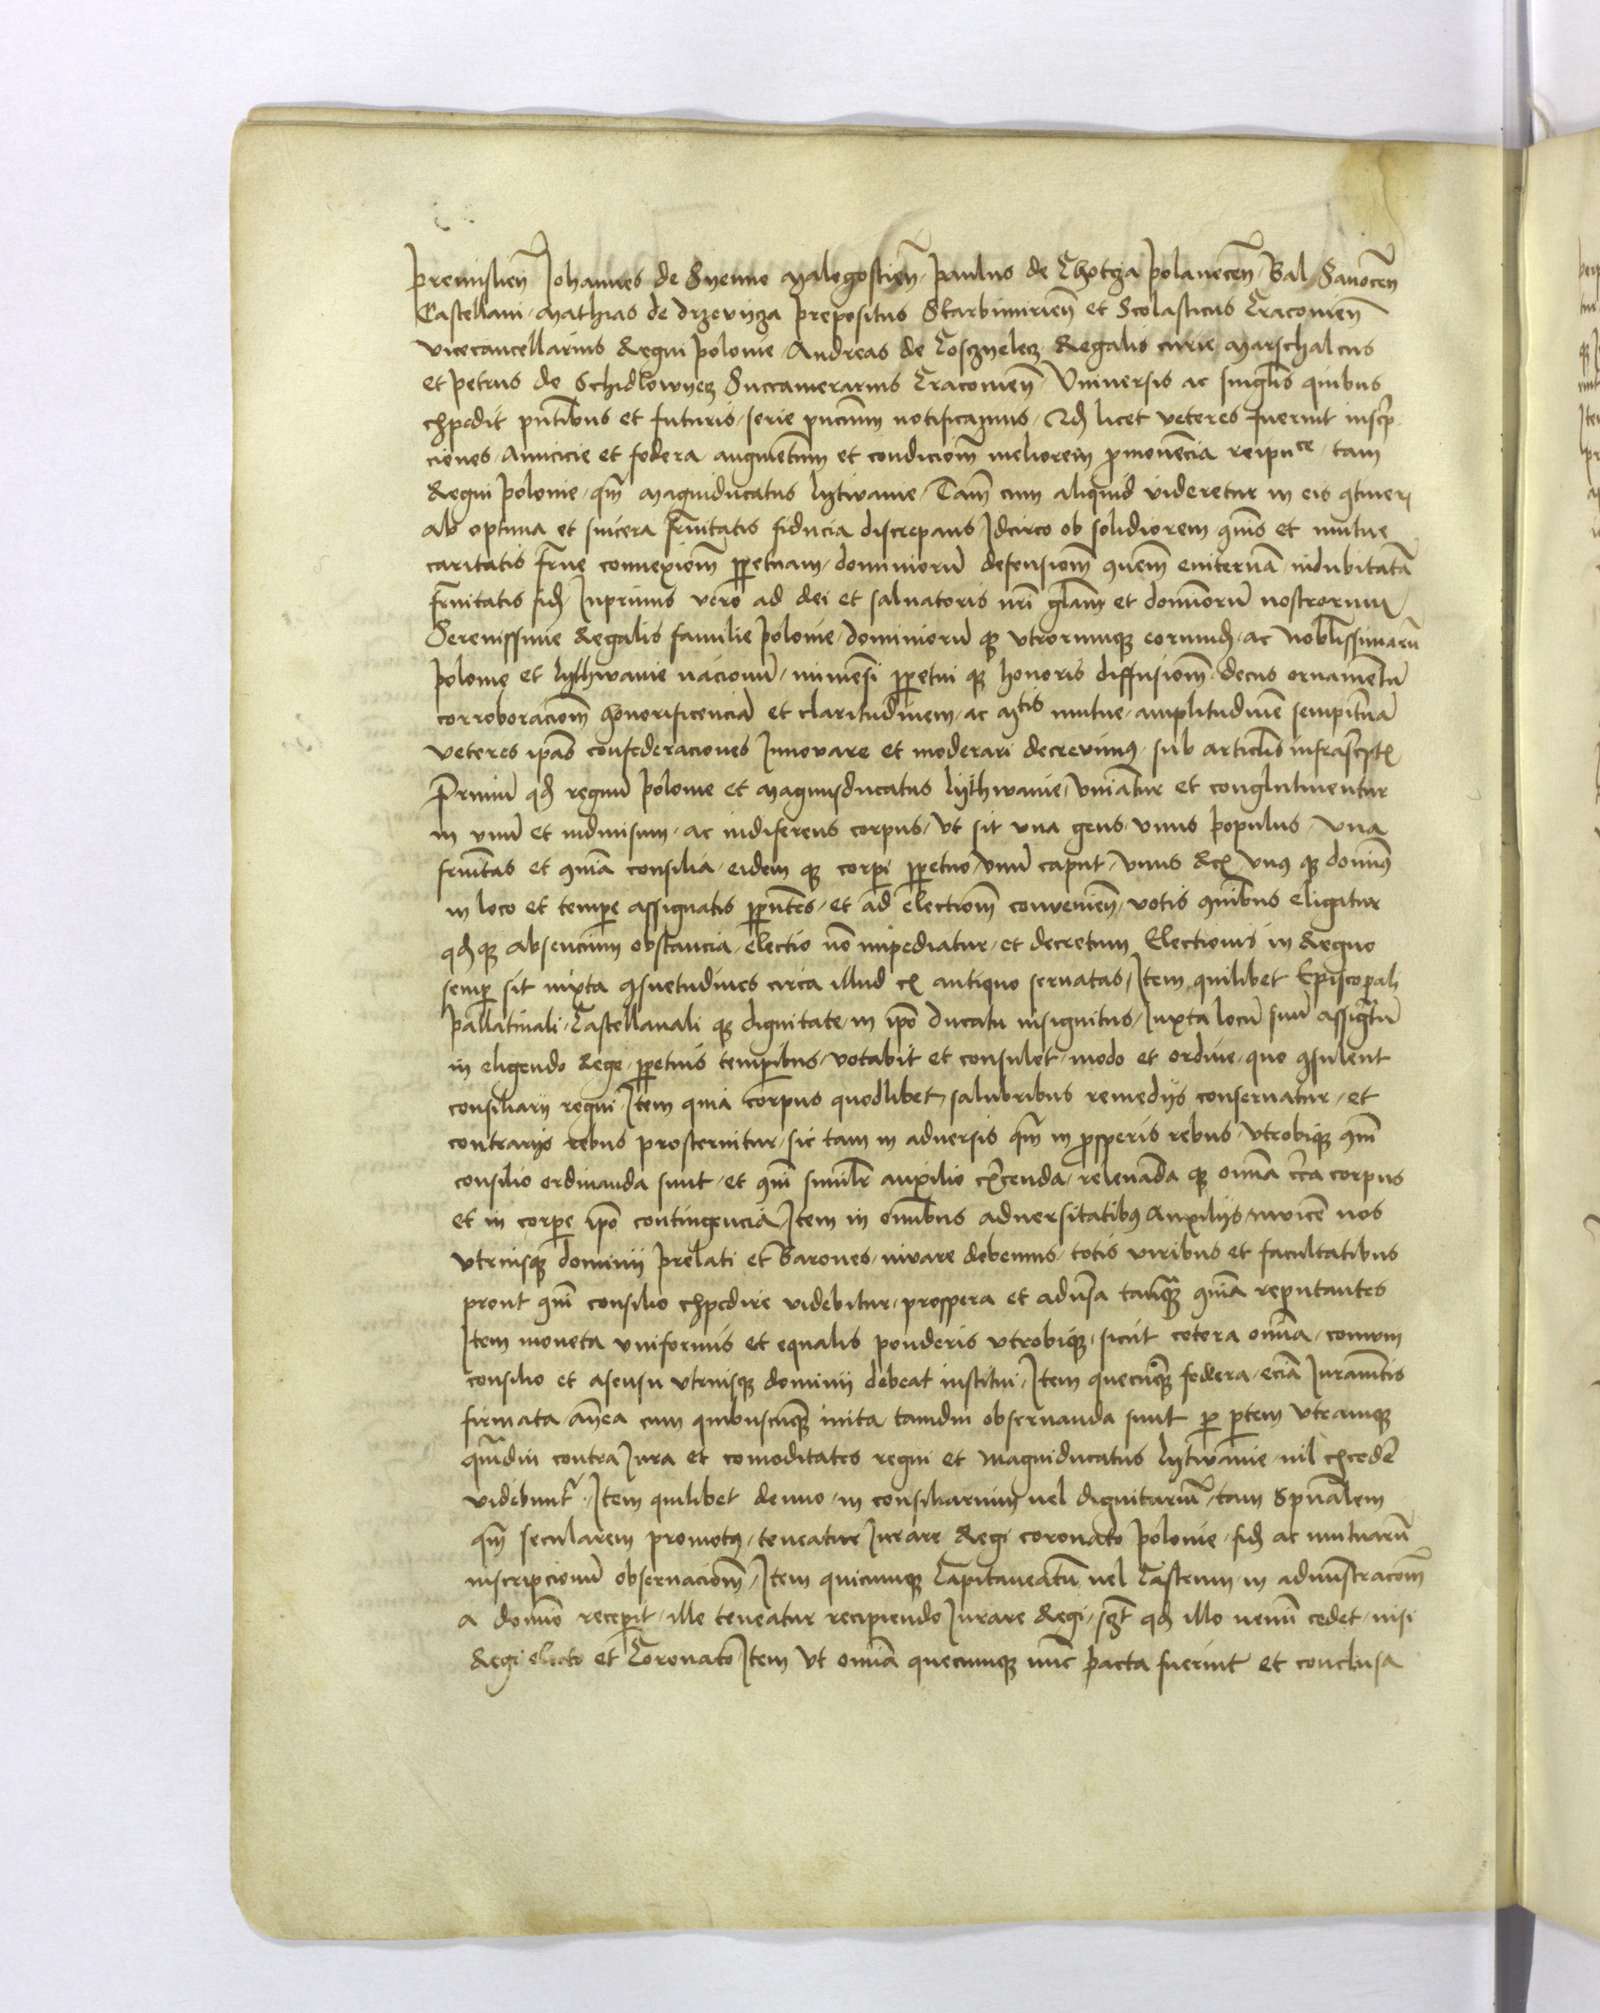 Premislien̄ Johannes de Syenno Malogostien̄ Paulus de Chotcza Polanecen̄ Bal Sanocen̄
Castellani Mathias de drzevycza prepositus Skarbimirien̄ et Scolasticus Cracouien̄
vicecancellarius Regni Polonie Andreas de Cosczyelecz Regalis curie Marschalcus
et Petrus de Schidlowyecz Succamerarius Cracouien̄ Vniuersis ac singlis quibus
expedit pn̄tibus et futuris serie pn̄cium notificamus Qd licet veteres fuerint inscrip
ciones Amicicie et federa augmentum et condicionē meliorem promouencia reipuce tam
Regni Polonie qm̄ Magniducatus lytwanie Tam̄ cum aliquid videretur in eis 9tineri
ab optima et sincera fr̄nitatis fiducia discrepans Idcirco ob solidiorem 9m̄is et mutue
caritatis fr̄ne connexionē ppetuam dominiorū defensionē 9muem̄ eniternā indubitatā
fr̄nitatis fid Inprimis vero ad dei et saluatoris nr̄i glām et dominorū nostrorum
Serenissime Regalis familie Polonie dominiorū qȝ vtrorumqȝ eorumd ac Nobilissimarū
Polonie et lythwanie nacionū inmensi ppetui qȝ honoris diffusionē decus ornamentū
corroboracionē honorificenciā et claritudinem ac Mtis mutue amplitudinē sempiternā
veteres ip̄as confederaciones Innovare et moderari decrevimus sub articlis infrascript
Primū qd regnū Polonie et Magnusducatus lythwanie vniantur et conglutinentur
in vnū et indiuisum ac indiferens corpus vt sit vna gens vnus populus vna
fr̄nitas et 9m̄ia consilia eidem qȝ corpi ppetuo vnū caput vnus Rex vnus qȝ domin9
in loco et tempe assignatis p pn̄tes et ad electionē convenien̄ votis 9m̄ibus eligatur
qd qȝ absencium obstancia electio nō impediatur et decretum Electionis in Regno
semp sit iuxta 9suetudines circa illud ex antiquo seruatas Item quilibet Episcopali
Pallatinali Castellanali qȝ dignitate in ip̄o ducatu insignitus Iuxta locū suū assigtū
in eligendo Rege ppetuis tempibus votabit et consulet modo et ordine quo 9sulent
consiliarij regni Item quia corpus quodlibet salubribus remedijs conseruatur et
contrarijs rebus prosternitur sic tam in aduersis qm̄ in prosperis rebus vtrobiqȝ 9m̄i
consilio ordinanda sunt et 9m̄i simili auxilio exercenda releuanda qȝ omnia circa corpus
et in corpe ip̄o contingencia Item in omnibus aduersitatib9 Auxilijs invicē nos
vtriusqȝ dominij Prelati et Barones iuvare debemus totis viribus et facultatibus
prout 9m̄i consilio expedire videbitur prospera et aduersa tamqȝ 9m̄ia reputantes
Item moneta vniformis et equalis ponderis vtrobiqȝ sicut cetera omnia comuni
consilio et asensu vtriusqȝ dominij debeat institui Item quecūqȝ federa eciā Iuramētis
firmata antea cum quibuscūqȝ inita tamdiu obseruanda sunt p ptem vtramqȝ
quādiu contra Iura et comoditates regni et Magniducatus lytwanie nil excedere
videbuntr̄ Item quilibet denuo in consiliarium vel dignitarium tam spūalem
qm̄ secularem promotus teneatur Iurare Regi coronato Polonie fid ac mutuarū
inscripcionū obseruacionē Item quicumqȝ Capitaneatū vel Castrum in administracionē
a domino recepit ille teneatur recipiendo Iurare Regi sct qd illo nemini cedet nisi
Regi electo et Coronato Item Vt omnia quecumqȝ nūc pacta fuerint et conclusa